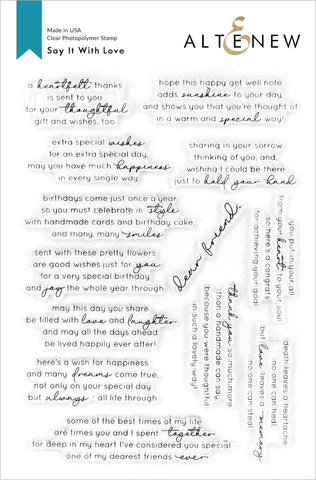 Made in USA
Clear Photopolymer Stamp
Say It With Love
ALTENEW
a heartfelt thanks
is sent to you
for your thoughtful
gift and wishes, too
hope this happy get well note
adds sunshine to your day,
and shows you that you're thought of
in a warm and special way!
extra special wishes
for an extra special day,
may you have much happiness
in every single way
sharing in your sorrow
thinking of you, and,
wishing I could be there
just to hold your hand
birthdays come just once a year
so you must celebrate in style
with handmade cards and birthday cake,
and many, many smiles
sent with these pretty flowers
are good wishes just for you
for a very special birthday
and joy the whole year through
dear friend,
you put in your all
from your heart to your soul
so here's a congrats
for achieving your goal
may this day you share
be filled with love and laughter
and may all the days ahead
be lived happily ever after!
thank you so much more
than a handmade can say,
because you were thoughtful
in such a lovely way!
death leaves a heartache
no one can heal,
but love leaves a memory
no one can steal
here's a wish for happiness
and many dreams come true,
not only on your special day
but always all life through
some of the best times of my life
are times you and I spent together
for deep in my heart I've considered you special
one of my dearest friends ever